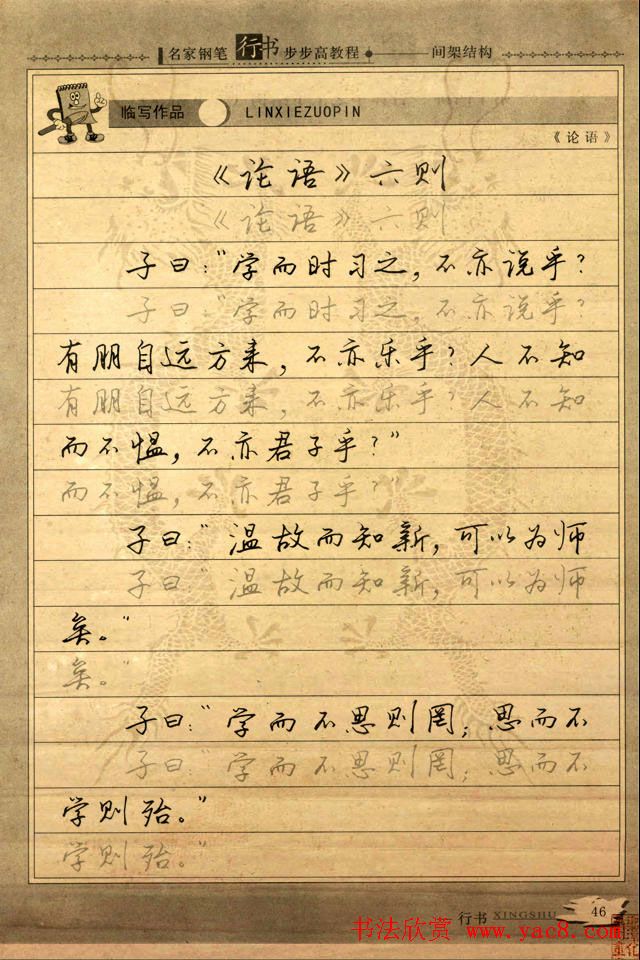 名家钢笔 行书 步步高教程 间架结构
临写作品 LINXIEZUOPIN
《论语》
《论语》六则
《论语》六则
子曰：“学而时习之，不亦说乎？
子曰：“学而时习之，不亦说乎？
有朋自远方来，不亦乐乎？人不知
有朋自远方来，不亦乐乎？人不知
而不愠，不亦君子乎？”
而不愠，不亦君子乎？”
子曰：“温故而知新，可以为师
子曰：“温故而知新，可以为师
矣。”
矣。”
子曰：“学而不思则罔；思而不
子曰：“学而不思则罔；思而不
学则殆。”
学则殆。”
行书 XINGSHU 46
书法欣赏 www.yac8.com